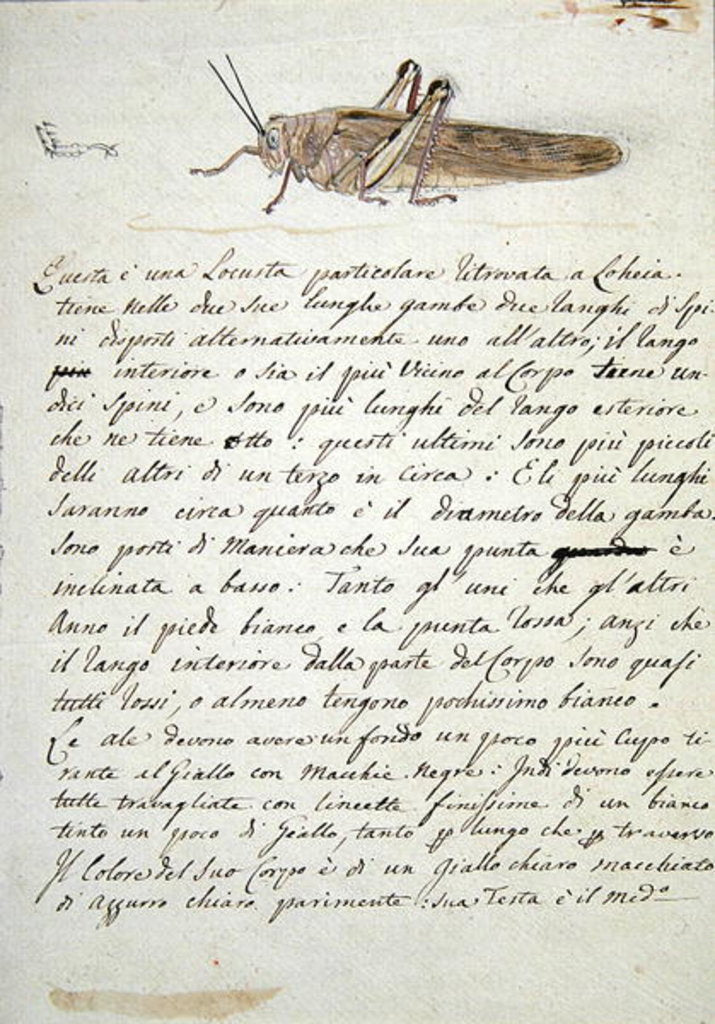 Questa è una Locusta particolare ritrovata a Loheia.
tiene nelle due sue lunghe gambe due ranghi di Spi-
ni disposti alternativamente uno all'altro; il rango
più interiore o sia il più Vicino al Corpo tiene un-
dici Spini, e sono più lunghi del rango esteriore
che ne tiene otto : questi ultimi sono più piccoli
delli altri di un terzo in circa : E li più lunghi
saranno circa quanto è il diametro della gamba.
sono posti di Maniera che sua punta è
inclinata a basso : Tanto gl'uni che gl'altri
Anno il piede bianco e la punta rossa ; anzi che
il rango interiore dalla parte del Corpo sono quasi
tutti rossi, o almeno tengono pochissimo bianco .
Le ale devono avere un fondo un poco più Cupo ti-
rante al Giallo con Macchie Negre : Indi devono essere
tutte travagliate con lineette finissime di un bianco
tinto un poco di Giallo, tanto p lungo che p traverso
Il Colore del suo Corpo è di un giallo chiaro macchiato
di azzurro chiaro parimente : sua Testa è il med.o